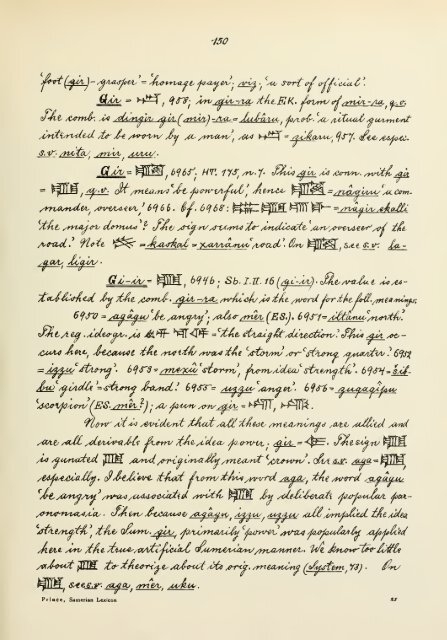 -150
'foot (gir)-grasper' = 'homage payer'; viz., 'a sort of official'.
Gir = 𒍏, 958; in gir-ra the E.K. form of mir-ra, q.v.
The comb. is dingir gir (mir)-ra = lubâru, prob. 'a ritual garment
intended to be worn by a man', as = zikaru, 957. See espec.
s.v. nita, mir, uru.
Gir = , 6965; HT. 175, n. 7. This gir is conn. with gir
= , q.v. It means 'be powerful', hence = nâgiru 'a com-
mander, overseer' 6966. Cf. 6968: = nâgir ekalli
'the major domus'? The sign seems to indicate 'an overseer of the
road.' Note = kaskal = xarrânu 'road'. On , see s.v. la-
gar, ligir.
Gi-ir = , 6946; Sb. I. II. 16 (gi-ir). The value is es-
tablished by the comb. gir-ra which is the word for the foll. meanings:
6950 = agâgu 'be angry'; also mêr (ES.). 6951 = iltânu 'north'.
The reg. ideogr. is = 'the straight direction'. This gir oc-
curs here, because the north was the 'storm' or 'strong quarter'. 6952
= izzu 'strong'. 6953 = mexû 'storm', from idea 'strength'. 6954 = šib-
bu 'girdle' = strong band! 6955 = uzzu 'anger'. 6956 = zuqaqîpu
'scorpion' (ES. mêr?); a pun on gir = , .
Now it is evident that all these meanings are allied and
are all derivable from the idea power; gir = . The sign
is gunated and originally meant 'crown'. See s.v. aga = ,
especially. I believe that from this word aga, the word agâgu
'be angry' was associated with by deliberate popular par-
onomasia. Then because agâgu, izzu, uzzu all implied the idea
'strength', the Sum. gir, primarily 'power' was popularly applied
here in the true artificial Sumerian manner. We know too little
about to theorize about its orig. meaning (System, 73). On
, see s.v. aga, mêr, uku.
Prince, Sumerian Lexicon